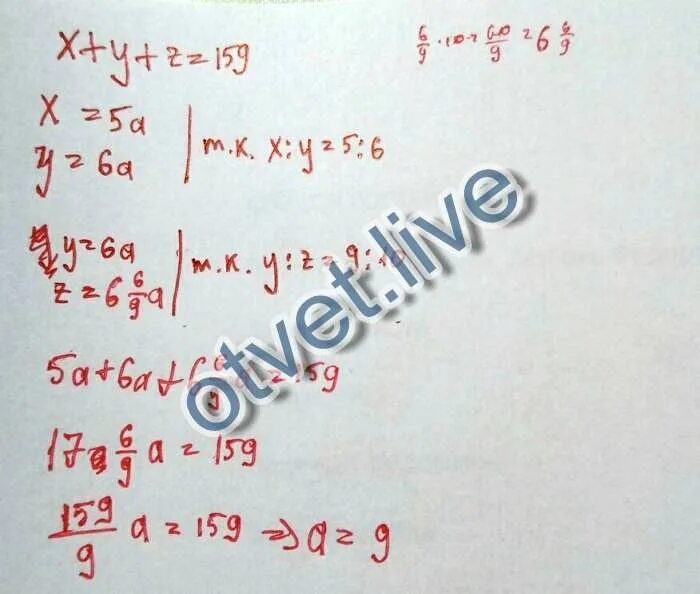 x+y+z=159
6/9 · 10 = 60/9 = 6 6/9
x = 5a
y = 6a
т.к. x:y = 5:6
y = 6a
z = 6 6/9 a
т.к. y:z = 9:10
5a+6a+6 6/9 a = 159
17 6/9 a = 159
159/9 a = 159 => a = 9
otvet.live